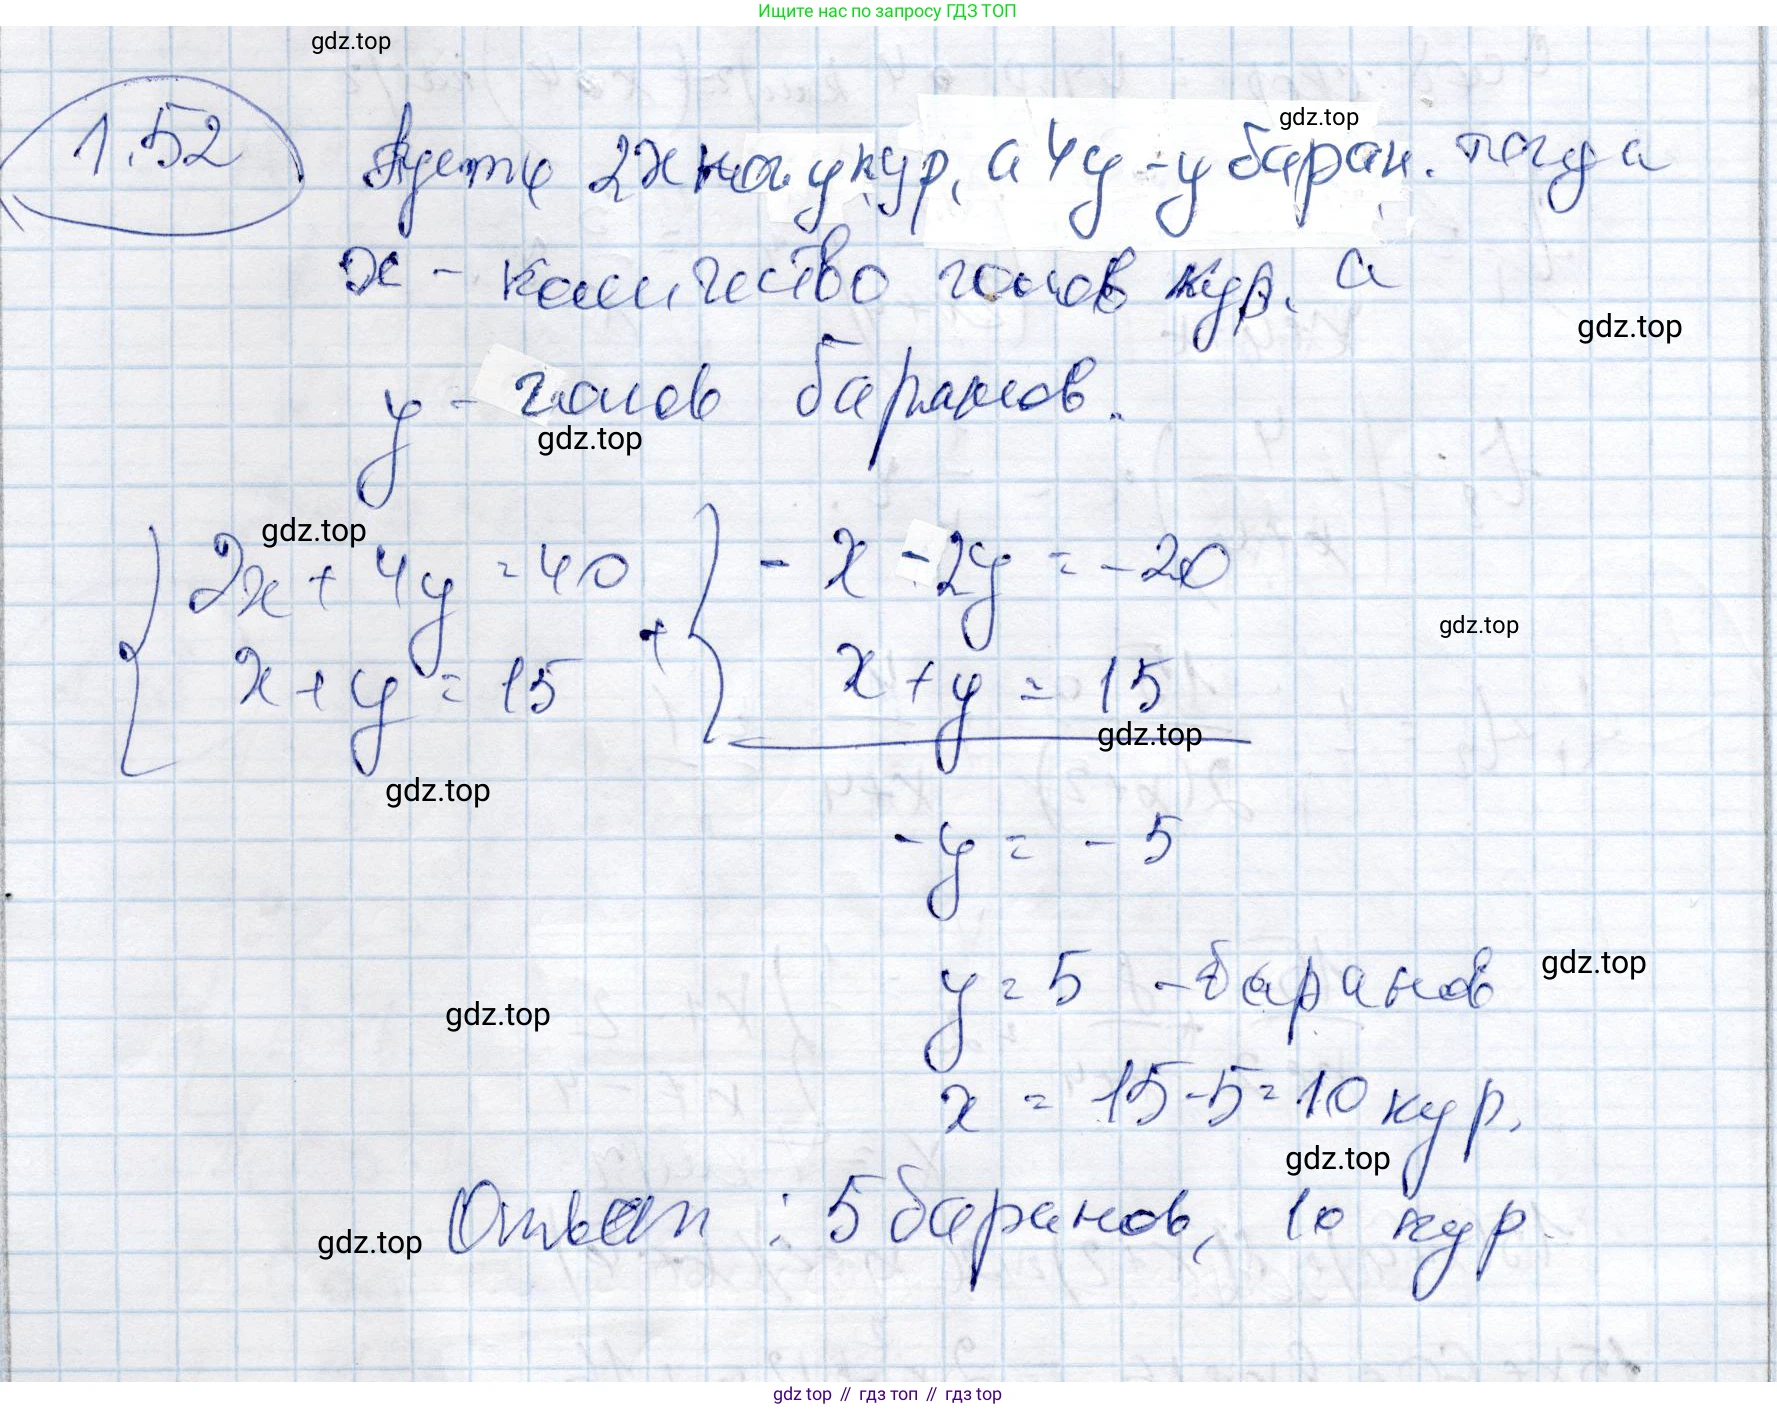 Ищите нас по запросу ГДЗ ТОП
gdz.top
1.52 Пусть 2x ног у кур, а 4y - у баран. тогда
gdz.top
x - количество голов кур, а
gdz.top
y - голов баранов.
gdz.top
gdz.top
2x + 4y = 40 + - x - 2y = -20
x + y = 15 x + y = 15
gdz.top
gdz.top
gdz.top
- y = - 5
y = 5 - баранов
gdz.top
gdz.top
x = 15 - 5 = 10 кур.
gdz.top
Ответ : 5 баранов, 10 кур.
gdz.top
gdz top // гдз топ // гдз top